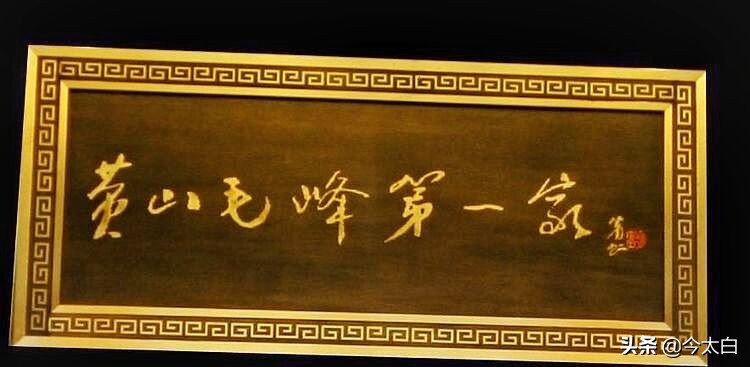 黄山毛峰第一家
头条 @今太白